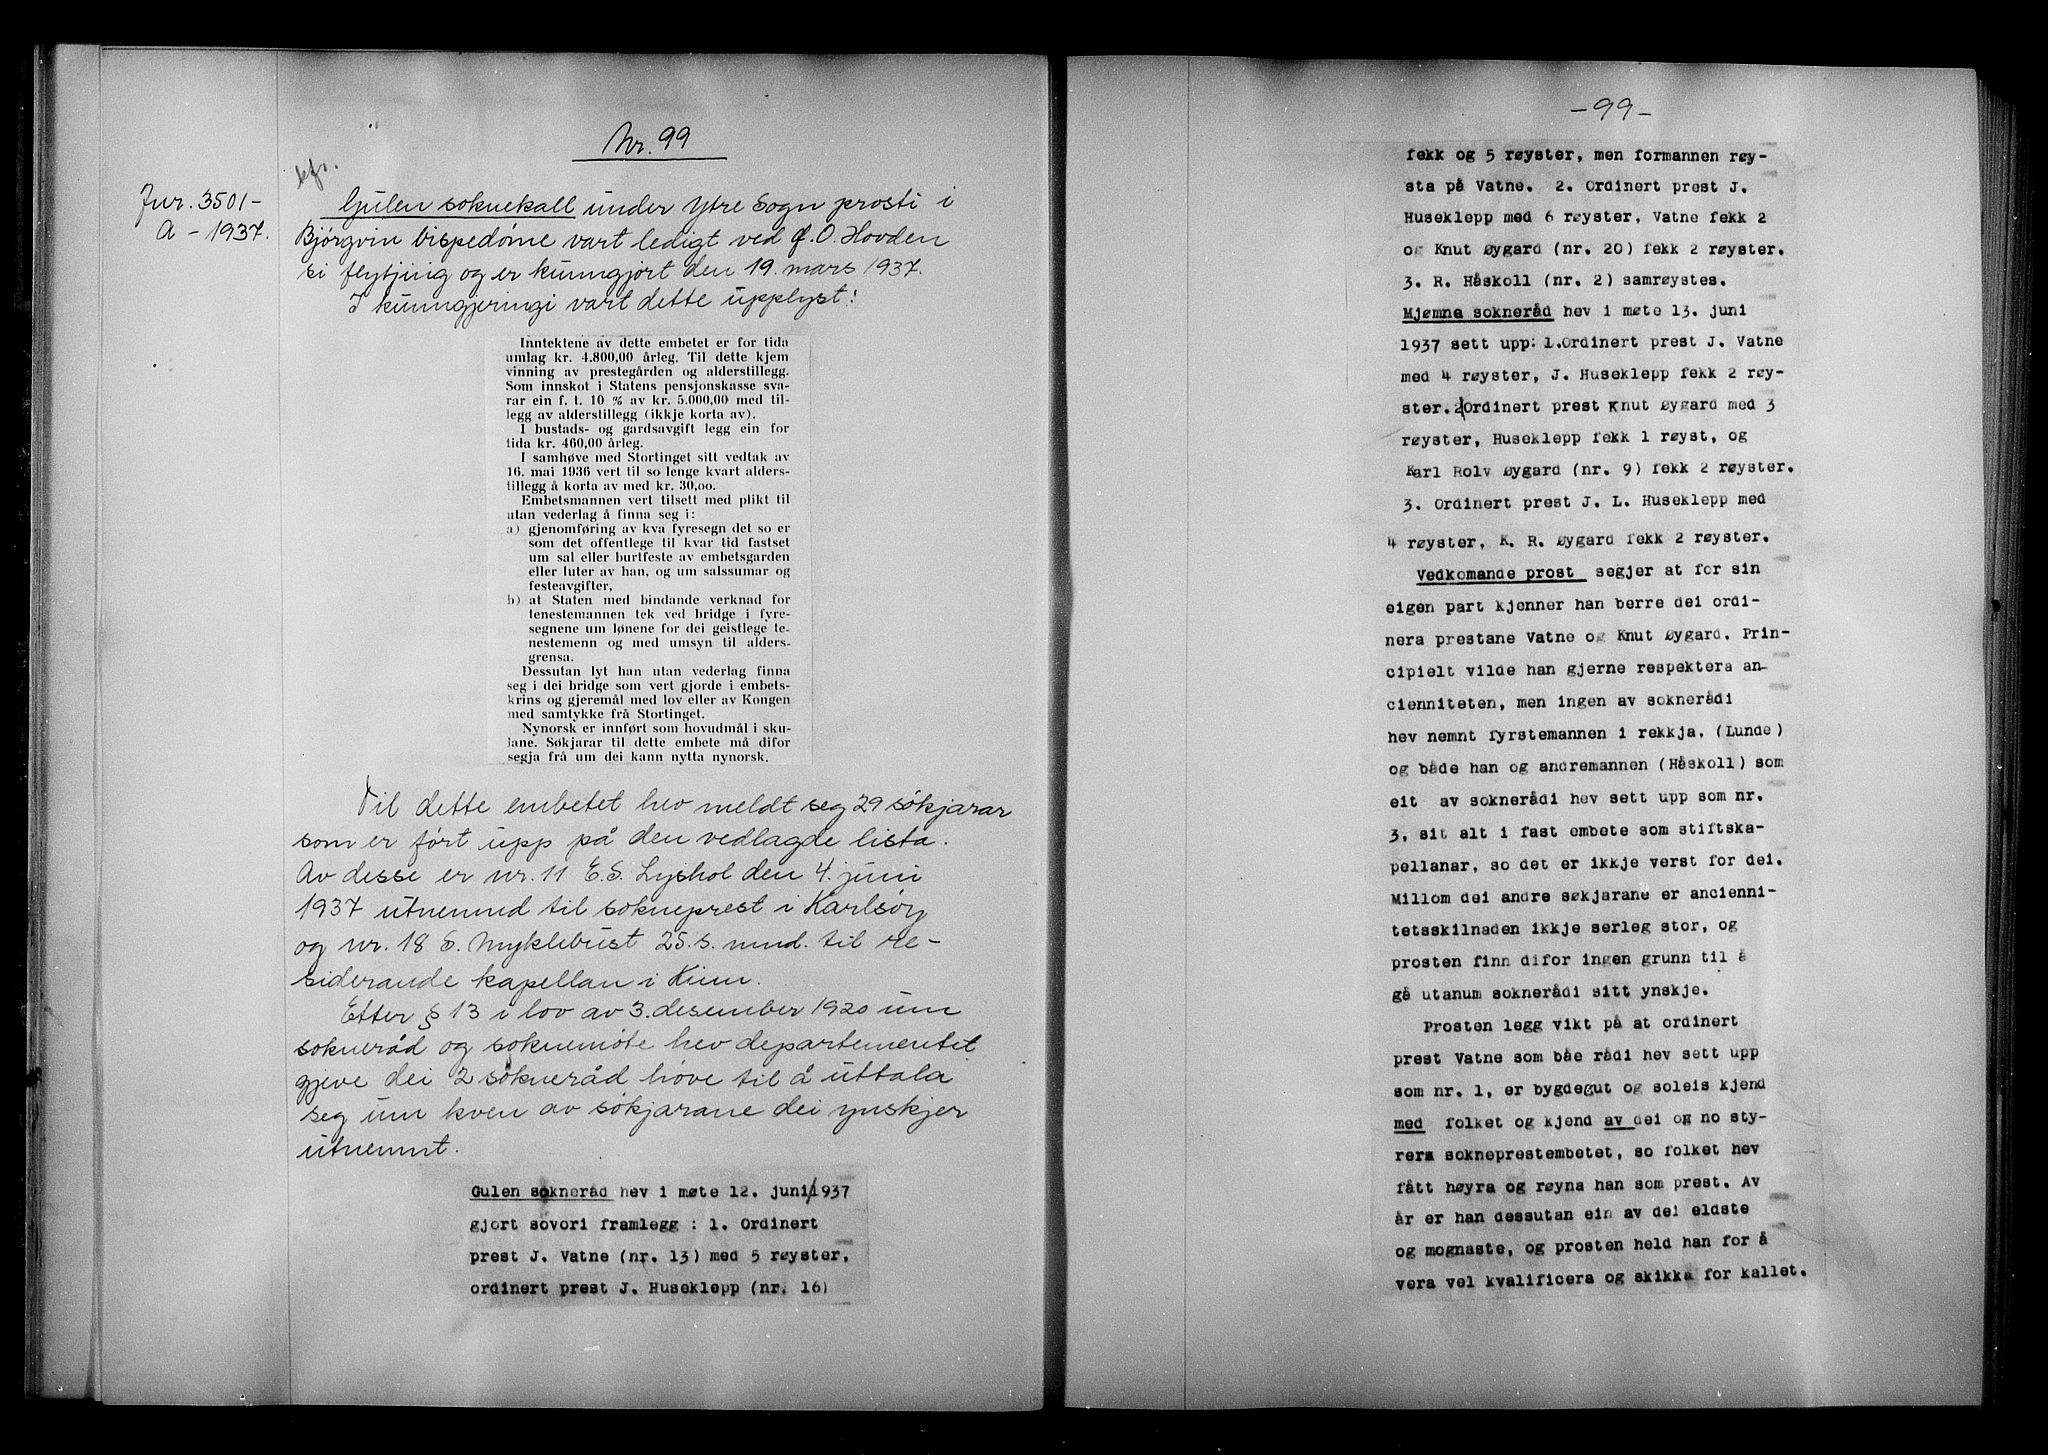 Nr. 99
kfr.
Jnr. 3501-
A - 1937.
Gulen soknekall under Ytre Sogn prosti i
Bjørgvin bispedøme vart ledigt ved O. Hovden
si flytjing og er kunngjort den 19. mars 1937.
I kunngjeringi vart dette upplyst:
Inntektene av dette embetet er for tida
umlag kr. 4.800,00 årleg. Til dette kjem
vinning av prestegården og alderstillegg.
Som innskot i Statens pensjonskasse sva-
rar ein f. t. 10 % av kr. 5.000,00 med til-
legg av alderstillegg (ikkje korta av).
I bustads- og gardsavgift legg ein for
tida kr. 460,00 årleg.
I samhøve med Stortinget sitt vedtak av
16. mai 1936 vert til so lenge kvart alders-
tillegg å korta av med kr. 30,00.
Embetsmannen vert tilsett med plikt til
utan vederlag å finna seg i:
a) gjenomføring av kva fyresegn det so er
som det offentlege til kvar tid fastset
um sal eller burtfeste av embetsgarden
eller luter av han, og um salssumar og
festeavgifter,
b) at Staten med bindande verknad for
tenestemannen tek ved bridge i fyre-
segnene um lønene for dei geistlege te-
nestemenn og med umsyn til alders-
grensa.
Dessutan lyt han utan vederlag finna
seg i dei bridge som vert gjorde i embets-
krins og gjeremål med lov eller av Kongen
med samtykke frå Stortinget.
Nynorsk er innført som hovudmål i sku-
lane. Søkjarar til dette embete må difor
segja frå um dei kann nytta nynorsk.
Til dette embetet hev meldt seg 29 søkjarar
som er ført upp på den vedlagde lista.
Av desse er nr. 11 E. S. Lyshol den 4. juni
1937 utnemnd til sokneprest i Karlsøy
og nr. 18 S. Myklebust 25. s. mnd. til re-
siderande kapellan i Kinn.
Etter § 13 i lov av 3. desember 1920 um
sokneråd og soknemøte hev departementet
gjeve dei 2 sokneråd høve til å uttala
seg um kven av søkjarane dei ynskjer
utnemnt.
Gulen sokneråd hev i møte 12. juni 1937
gjort sovori framlegg : 1. Ordinert
prest J. Vatne (nr. 13) med 5 røyster,
ordinert prest J. Huseklepp (nr. 16)
-99-
fekk og 5 røyster, men formannen røy-
sta på Vatne. 2. Ordinert prest J.
Huseklepp med 6 røyster, Vatne fekk 2
og Knut Øygard (nr. 20) fekk 2 røyster.
3. R. Håskoll (nr. 2) samrøystes.
Mjømna sokneråd hev i møte 13. juni
1937 sett upp: 1.Ordinert prest J. Vatne
med 4 røyster, J. Huseklepp fekk 2 røy-
ster. 2 Ordinert prest Knut Øygard med 3
røyster, Huseklepp fekk 1 røyst, og
Karl Rolv Øygard (nr. 9) fekk 2 røyster.
3. Ordinert prest J. L. Huseklepp med
4 røyster, K. R. Øygard fekk 2 røyster.
Vedkomande prost segjer at for sin
eigen part kjenner han berre dei ordi-
nera prestane Vatne og Knut Øygard. Prin-
cipielt vilde han gjerne respektera an-
cienniteten, men ingen av soknerådi
hev nemnt fyrstemannen i rekkja, (Lunde)
og både han og andremannen (Håskoll) som
eit av soknerådi hev sett upp som nr.
3, sit alt i fast embete som stiftska-
pellanar, so det er ikkje verst for dei.
Millom dei andre søkjarane er ancienni-
tetsskilnaden ikkje serleg stor, og
prosten finn difor ingen grunn til å
gå utanum soknerådi sitt ynskje.
Prosten legg vikt på at ordinert
prest Vatne som båe rådi hev sett upp
som nr. 1, er bygdegut og soleis kjend
med folket og kjend av dei og no sty-
rera sokneprestembetet, so folket hev
fått høyra og røyna han som prest. Av
år er han dessutan ein av dei eldste
og mognaste, og prosten held han for å
vera vel kvalificera og skikka for kallet.